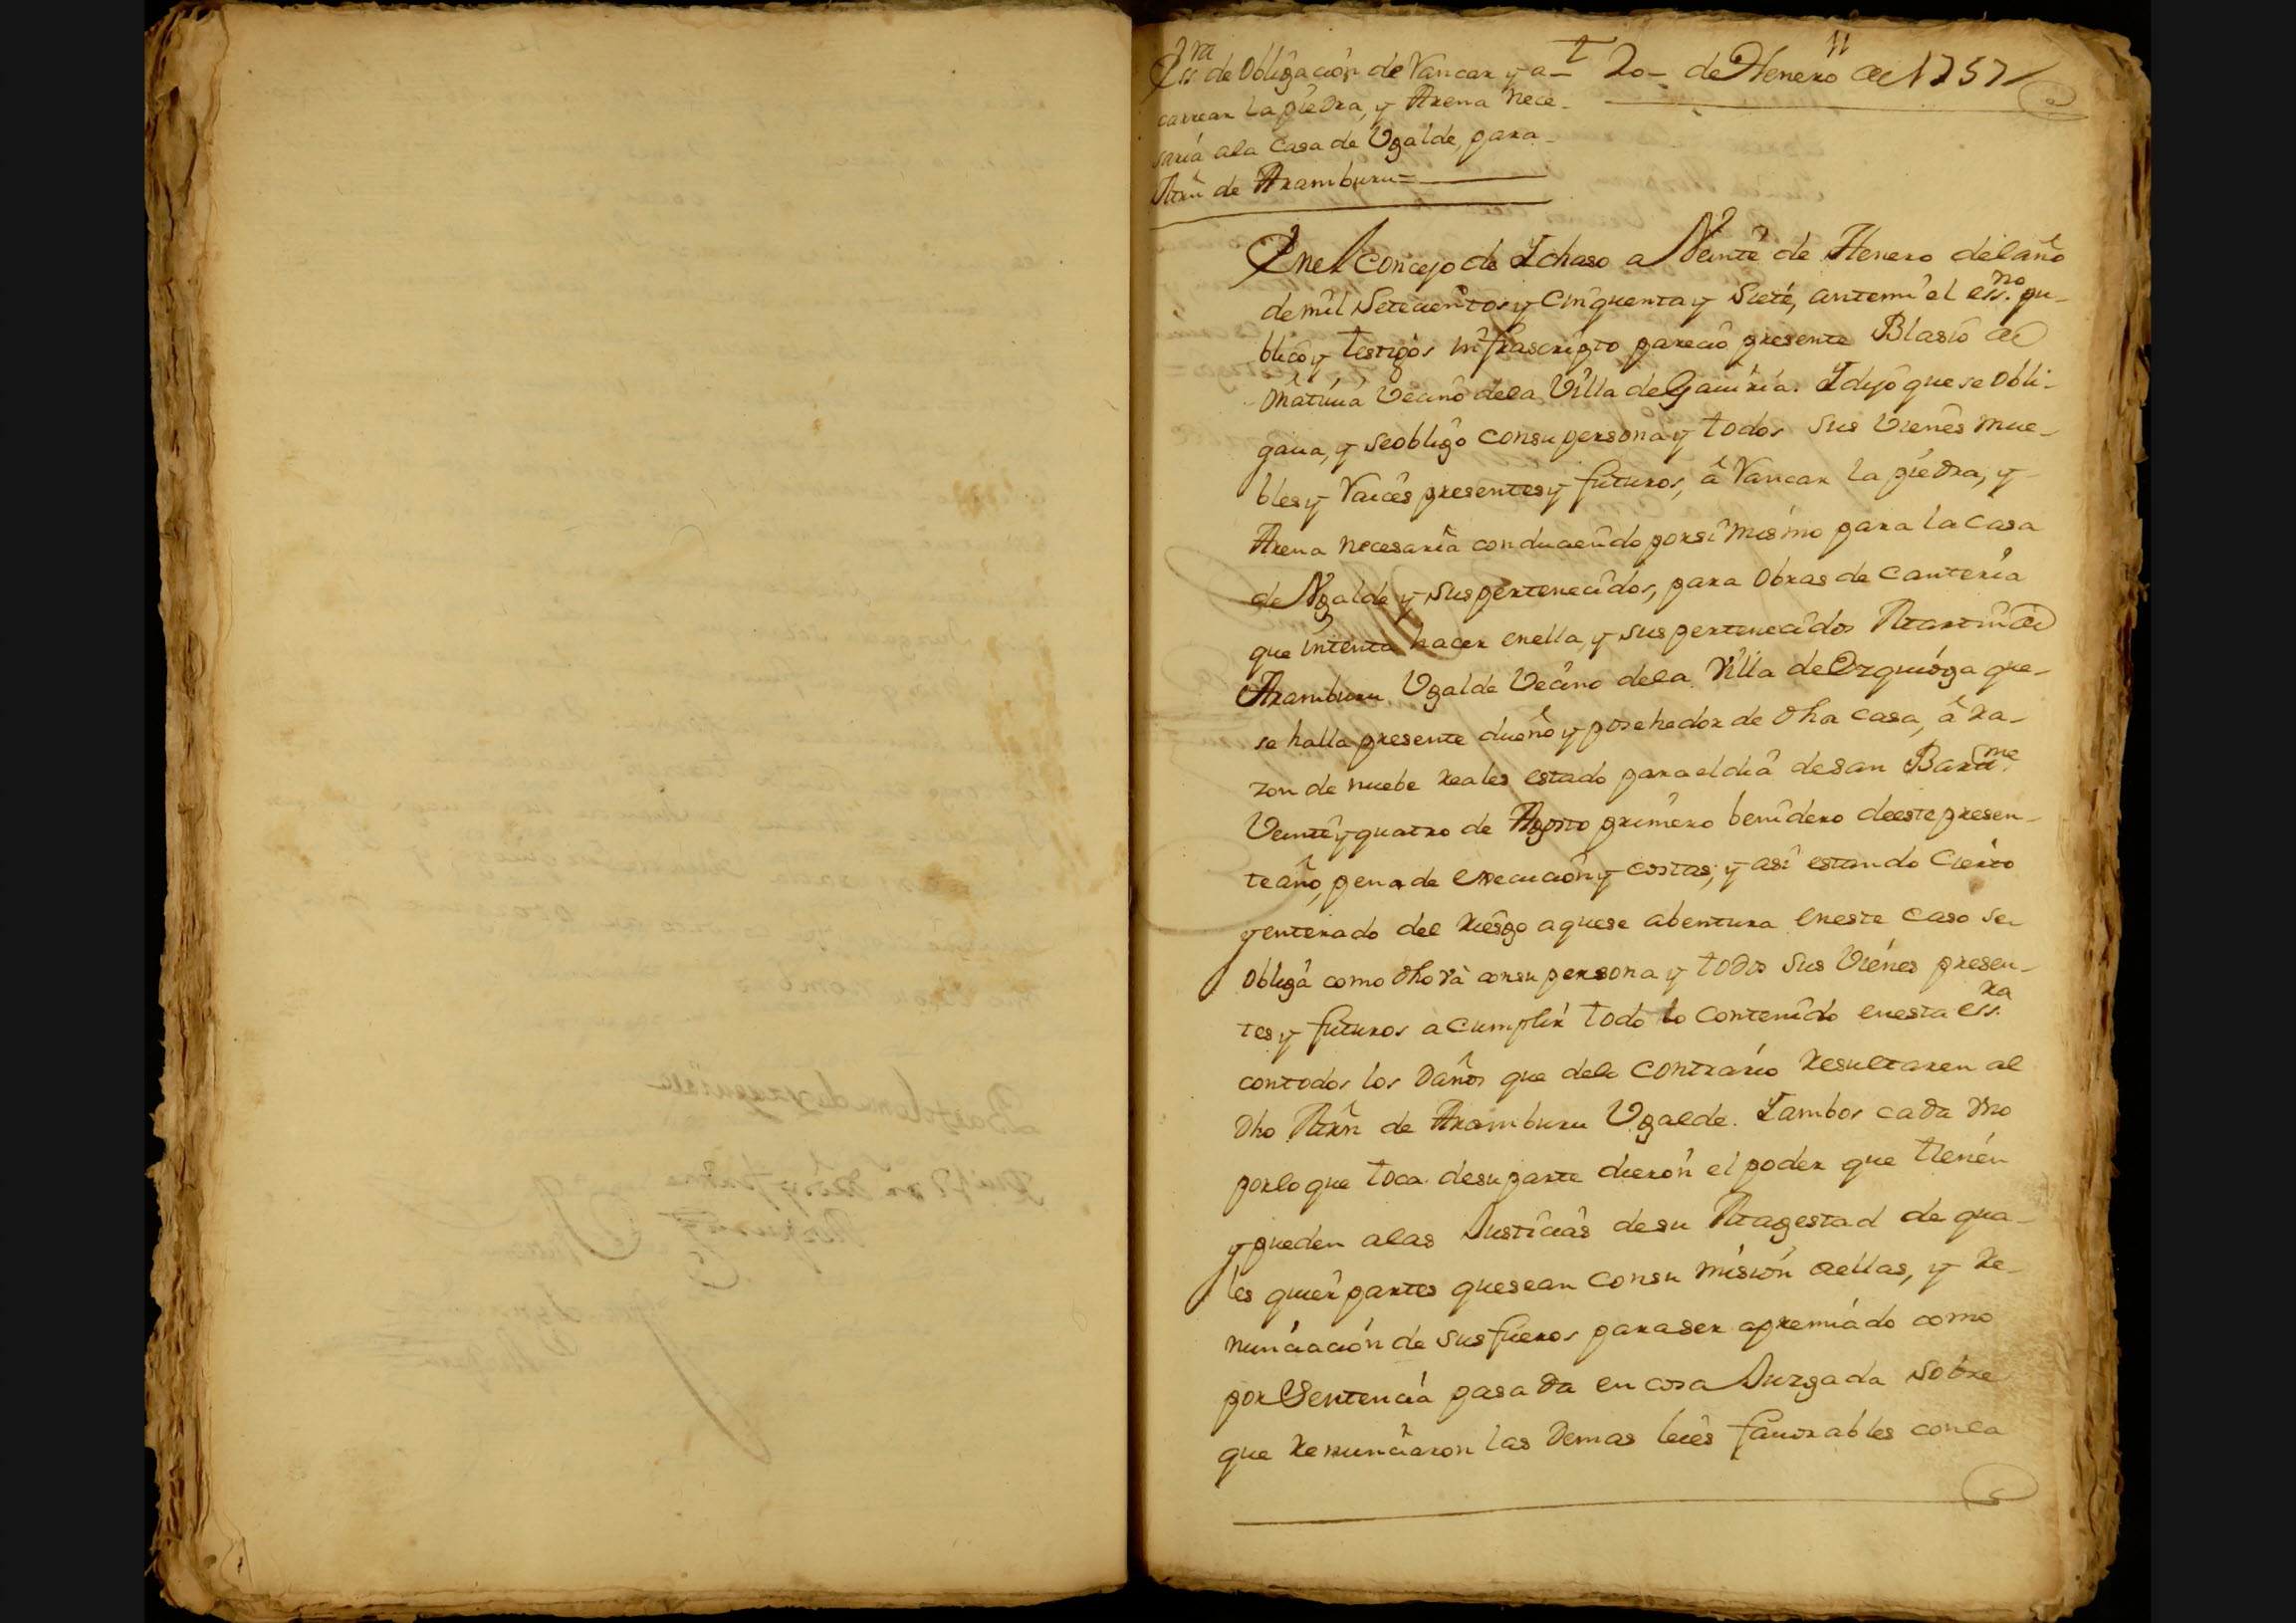 Ess.ra de Obligación de Vancar y a-
carrear la piedra, y Arena nece-
saria ala Casa de Ugalde, para
Mrn de Aramburu=
t 20- de Henero de 1757
11
Enel Concejo de Ichaso a Veinte de Henero delaño
demil Setecientos y Cinquenta y Siete, antemi el ess.no pu-
blico y testigos infrascripto pareció presente Blasio de
Vecino dela Villa de Gaviria. Idijo que se obli-
gaua, y seobligo consu persona y todos sus Vienes mue-
bles y Raices presentes y futuros, á Vancar la piedra, y
Arena necesaria conduciendo porsi mismo para la Casa
de Ugalde y sus pertenecidos, para Obras de Canteria
que intenta hacer enella, y sus pertenecidos Martin de
Aramburu Ugalde Vecino dela Villa de Ezquioga que
se halla presente dueño y posehedor de dha casa, á ra-
zon de nuebe reales estado para el dia de san Barme.
Veinte y quatro de Agosto primero benidero deeste presen-
te año, pena de execución y costas; y asi estando Cierto
y enterado del riesgo aquese abentura eneste caso se
obliga como dho va consu persona y todos sus Vienes presen-
tes y futuros a Cumplir todo lo contenido enesta ess.ra
contodos los daños que delo contrario resultaren al
dho Mrn de Aramburu Ugalde. Iambos cada Vno
porlo que toca desu parte dierón el poder que tienen
y pueden alas Justicias desu Magestad de qua-
les quier partes quesean consu misión aellas, y re-
nunciación de sus fueros paraser apremiado como
por Sentencia pasada en cosa Juzgada sobre
que renunciaron las demas leies fauorables conla